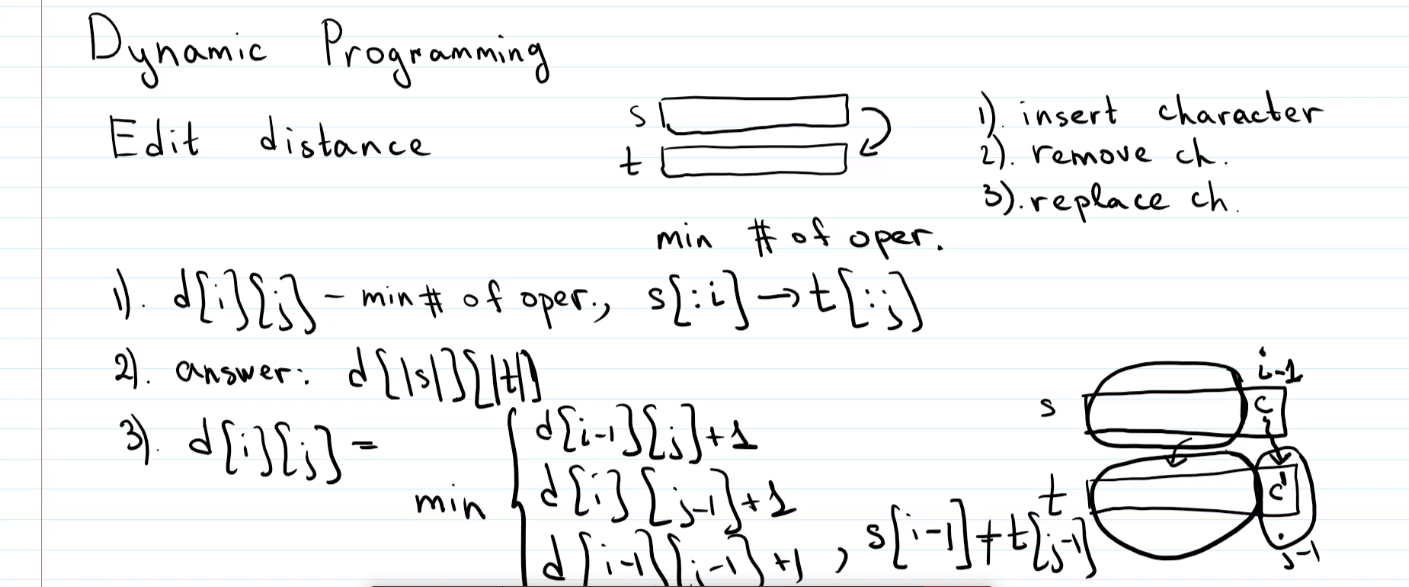 Dynamic Programming
Edit distance
s
t
1). insert character
2). remove ch.
3). replace ch.
min # of oper.
1). d[i][j] – min # of oper., s[:i] → t[:j]
2). answer: d[|s|][|t|]
3). d[i][j] =
min
d[i-1][j]+1
d[i][j-1]+1
d[i-1][j-1]+1, s[i-1]≠t[j-1]
i-1
s
c
t
c'
j-1